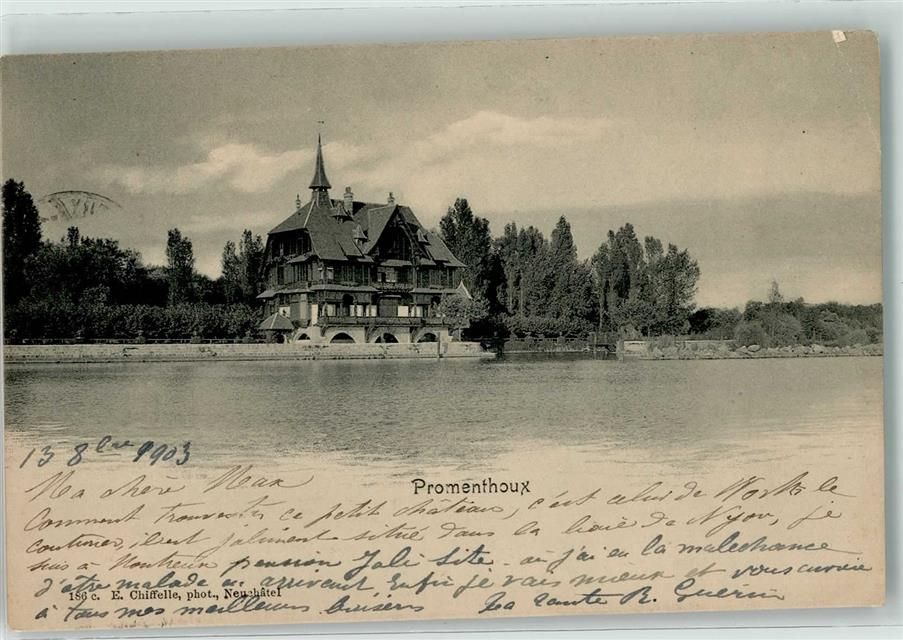 13 8bre 1903
Promenthoux
Ma chère Max
Comment trouvez ce petit château, c'est celui de Worth le
couturier, il est joliment situé dans la baie de Nyon, je
suis à Montreux pension Joli Site - où j'ai eu la malechance
d'être malade en arrivant. Enfin je vais mieux et vous envoie
186 c. E. Chiffelle, phot., Neuchâtel
à tous mes meilleurs baisers La tante B. Guerin